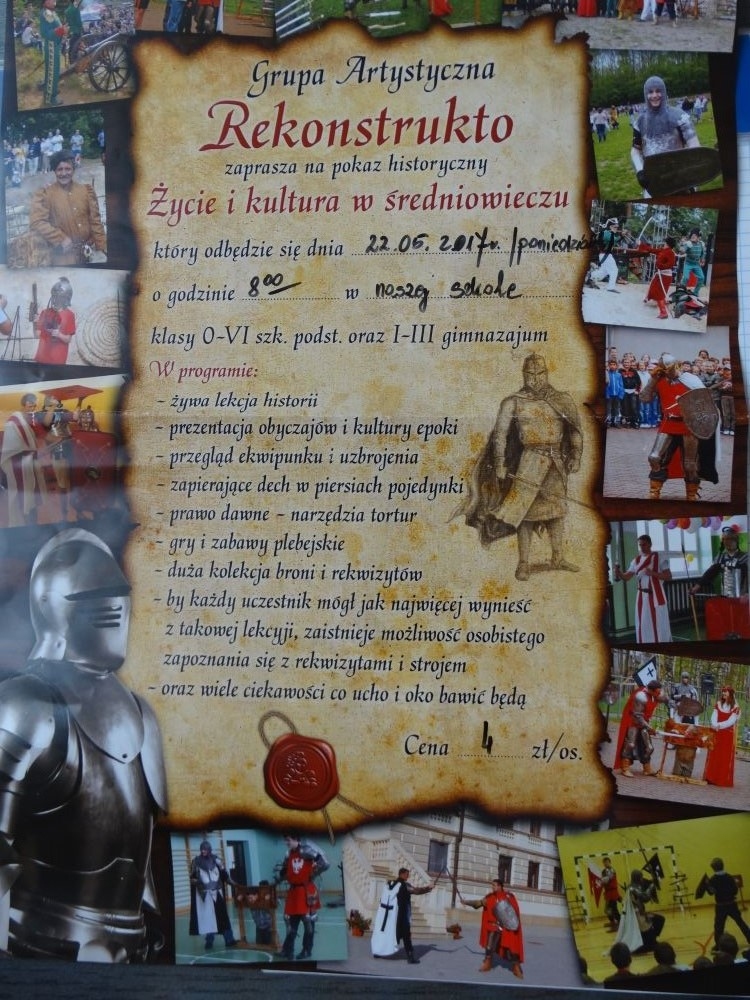 Grupa Artystyczna
Rekonstrukto
zaprasza na pokaz historyczny
Życie i kultura w średniowieczu
który odbędzie się dnia 22.05.2017r. /poniedziałek
o godzinie 8⁰⁰ w naszej szkole
klasy 0-VI szk. podst. oraz I-III gimnazajum
W programie:
- żywa lekcja historii
- prezentacja obyczajów i kultury epoki
- przegląd ekwipunku i uzbrojenia
- zapierające dech w piersiach pojedynki
- prawo dawne - narzędzia tortur
- gry i zabawy plebejskie
- duża kolekcja broni i rekwizytów
- by każdy uczestnik mógł jak najwięcej wynieść
z takowej lekcyji, zaistnieje możliwość osobistego
zapoznania się z rekwizytami i strojem
- oraz wiele ciekawości co ucho i oko bawić będą
Cena 4 zł/os.